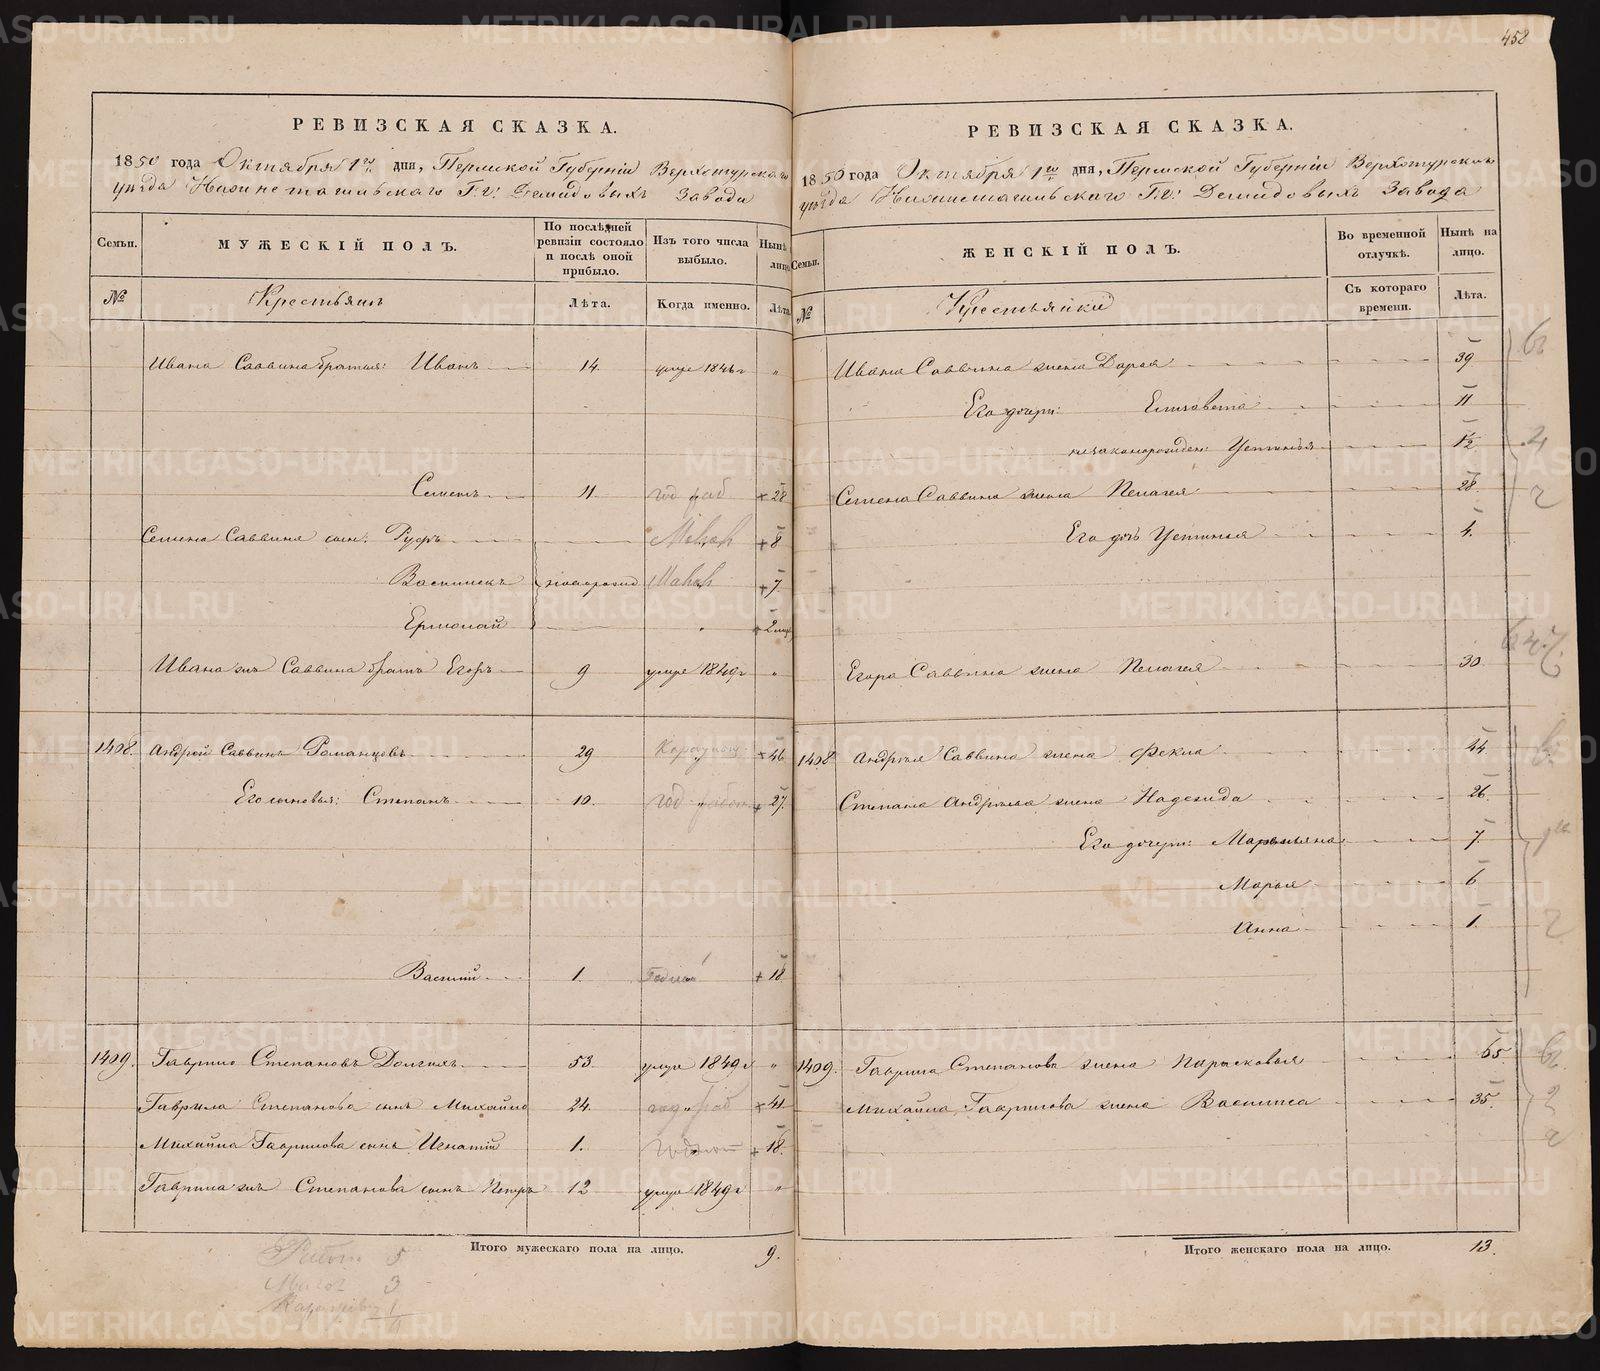 458
РЕВИЗСКАЯ СКАЗКА.
1850 года Октября 1го дня, Пермской Губерніи Верхотурскаго
уѣзда Нижнетагильскаго Г.г. Демидовыхъ Завода
Семьи.
МУЖЕСКІЙ ПОЛЪ.
По послѣдней ревизіи состояло и послѣ оной прибыло.
Изъ того числа выбыло.
Нынѣ на лицо.
№
Крестьянъ
Лѣта.
Когда именно.
Лѣта.
Ивана Саввина братья: Иванъ 14. умре 1846г "
Семенъ 11 год раб 28
Семена Саввина сын: 8
новорожд 7
Ермолай 2
Ивана жъ Саввина братъ Егоръ 9 умре 1849г "
1408. Андрей Саввинъ Романцовъ 29 46
Его сыновья: Степанъ 10. год 27
Василій 1. Годной 18
1409. Гаврило Степановъ Долгихъ 53. умре 1849г "
Гаврила Степанова сынъ Михайло 24. год раб 41
Михайла Гаврилова сынъ Игнатій 1. 18.
Гаврила жъ Степанова сынъ Петръ 12 умре 1849г "
Итого мужескаго пола на лицо. 9.
Работ 5
Малол 3
1
РЕВИЗСКАЯ СКАЗКА.
1850 года Октября 1го дня, Пермской Губерніи Верхотурскаго
уѣзда Нижнетагильскаго Г.г. Демидовыхъ Завода
Семьи.
ЖЕНСКІЙ ПОЛЪ.
Во временной отлучкѣ.
Нынѣ на лицо.
№
Крестьянки
Съ котораго времени.
Лѣта.
Ивана Саввина жена Дарья 39
Его дочери: Елизавета 11
незаконорожден: Устинья 1/2
Семена Саввина жена Пелагея 28
Его дочь Устинья 4.
Егора Саввина жена Пелагея 30.
1408 Андрея Саввина жена Фекла 44
Степана Андреева жена Надежда 26
Его дочери: Маремьяна 7.
Марья 6
Анна 1.
1409. Гаврила Степанова жена Парасковья 65
Михайла Гаврилова жена Василиса 35.
Итого женскаго пола на лицо. 13.
METRIKI.GASO-URAL.RU